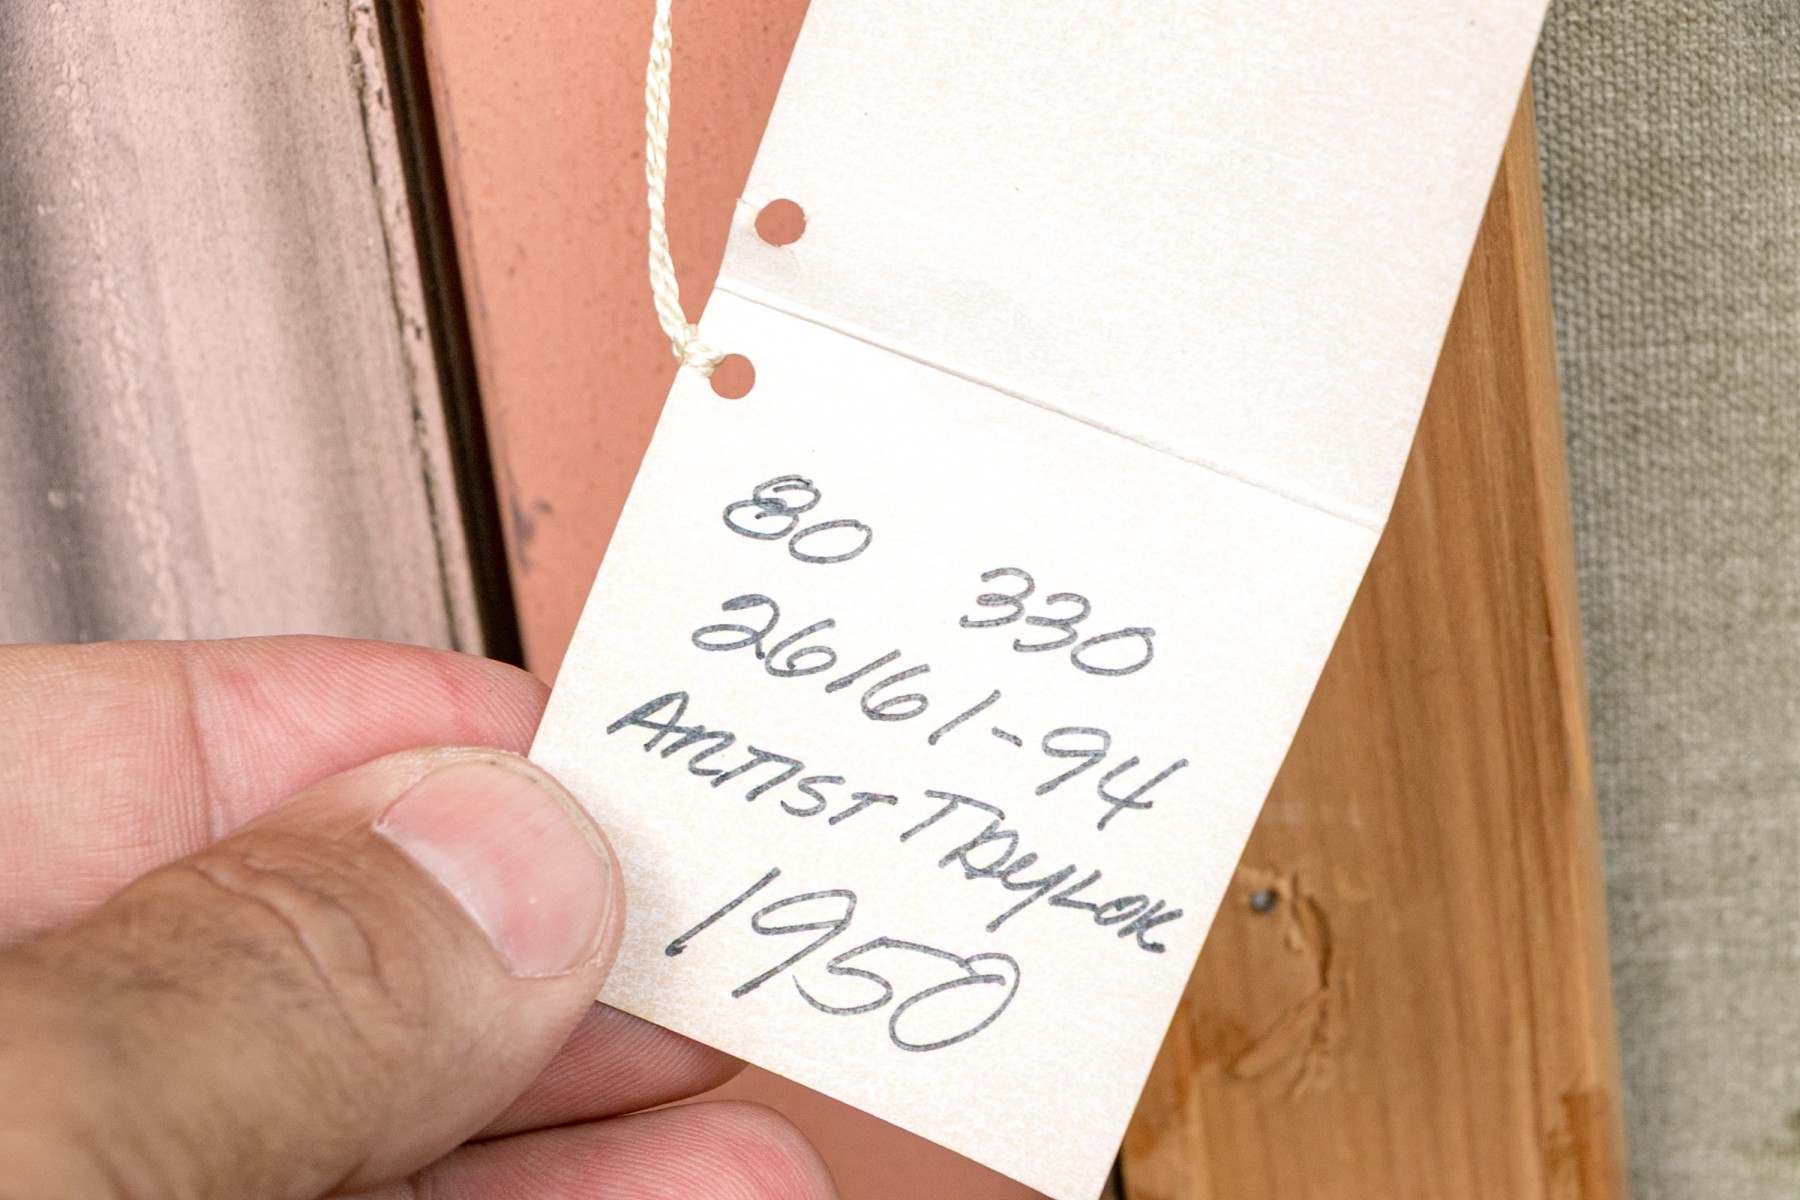 80 330
26161-94
ARTIST TAYLOR
1950